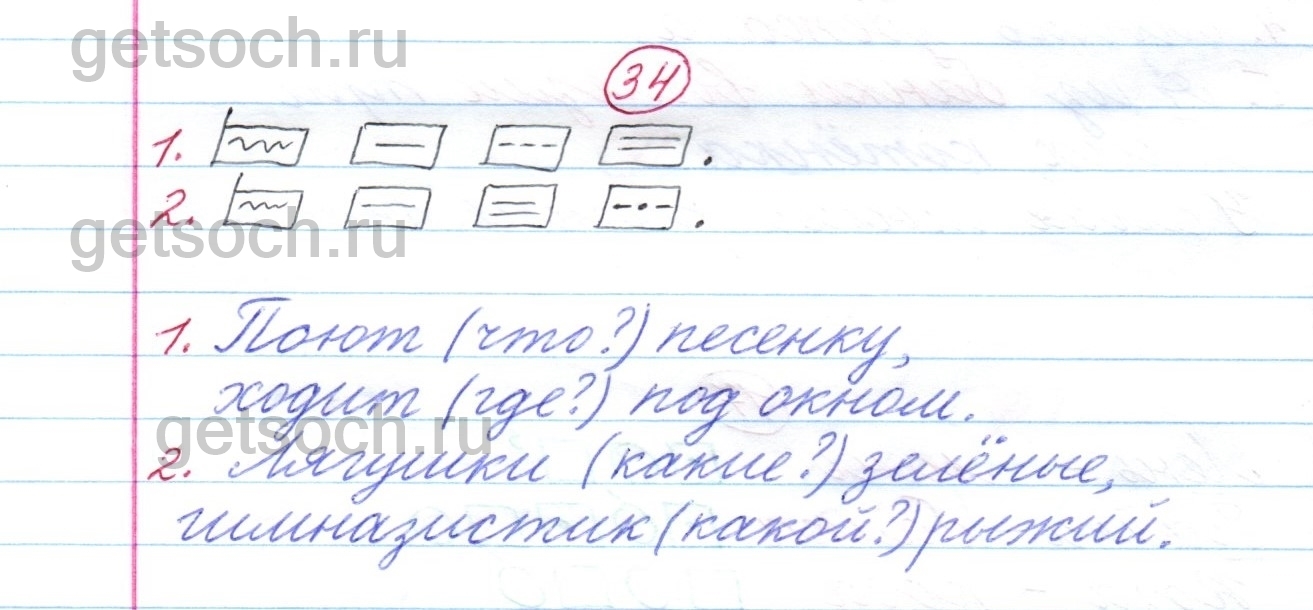 getsoch.ru
34
1.
2.
getsoch.ru
1. Поют (что?) песенку,
ходит (где?) под окном.
getsoch.ru
2. Лягушки (какие?) зелёные,
гимназистик (какой?) рыжий.